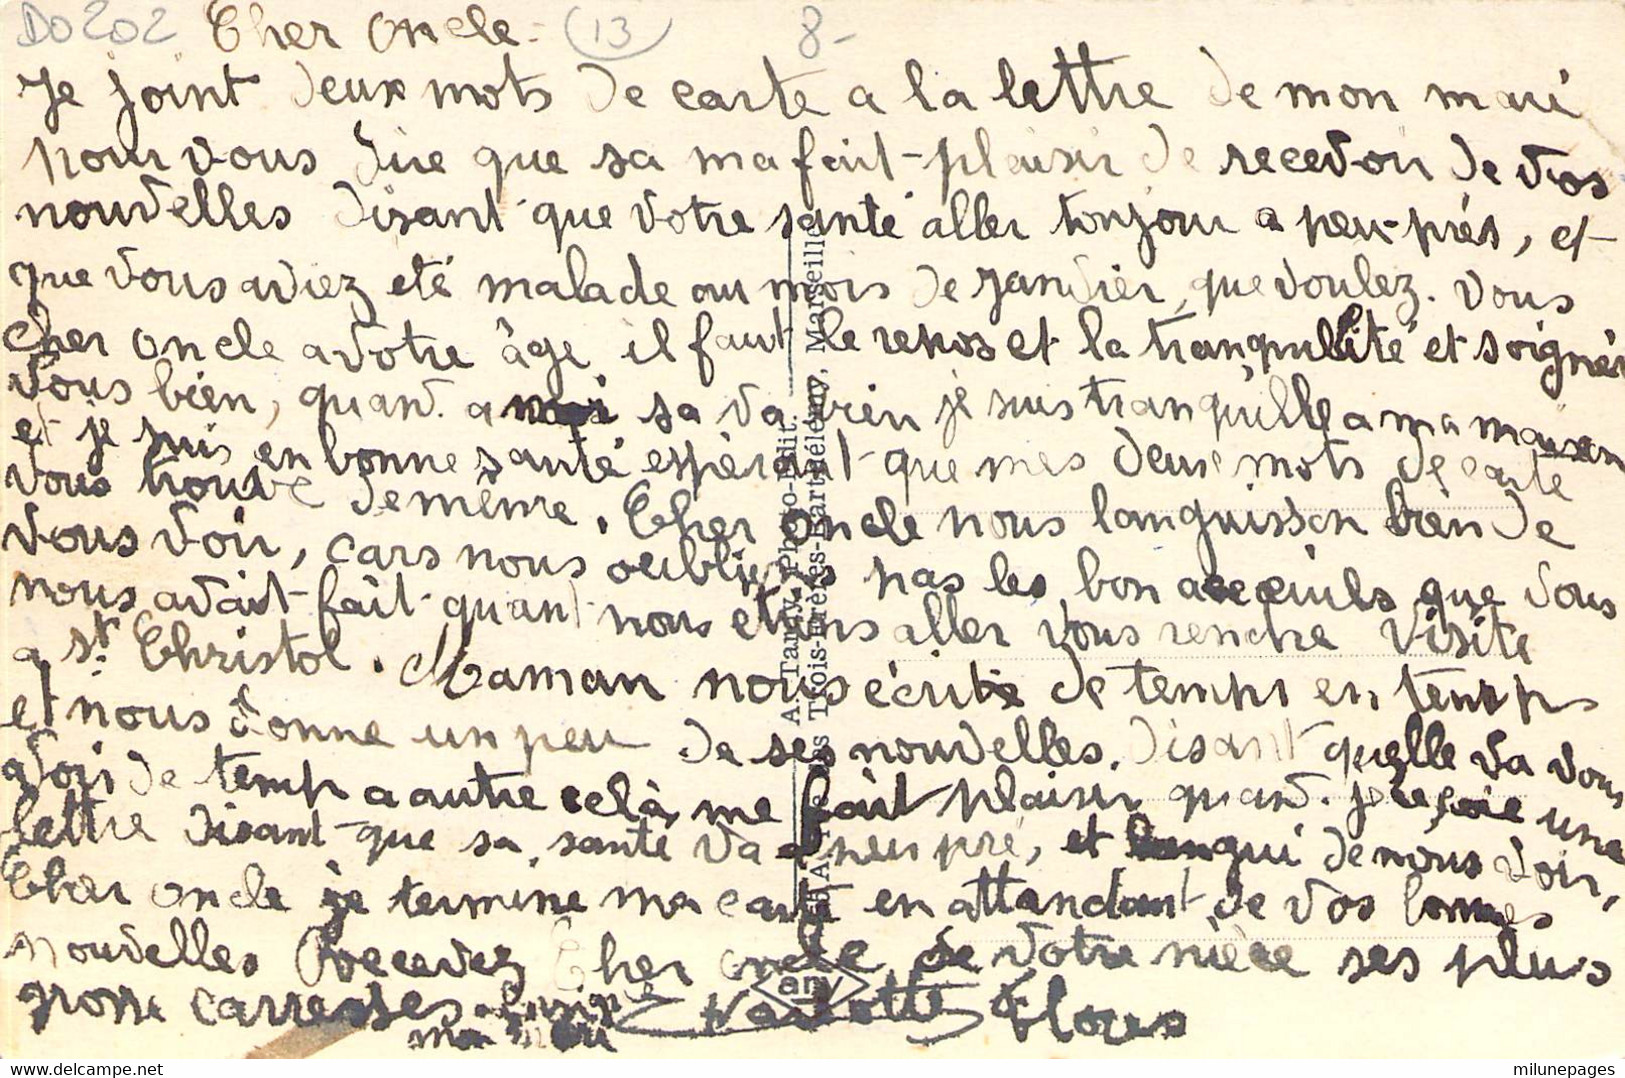 DO202 Cher Oncle - 13 8-
Je joint deux mots de carte a la lettre de mon mari
pour vous dire que sa ma fait plaisir de recevoir de vos
nouvelles disant que votre santé aller toujour a peu-près, et
que vous aviez eté malade au mois de Janvier, que voulez. vous
Cher Oncle a votre âge il faut le repos et la tranquillité et soigner
vous bien, quand. a moi sa va bien je suis tranquille a ma maison
et je suis en bonne santé espérant que mes deux mots de carte
vous trouve de même. Cher Oncle nous languisson bien de
vous voir, cars nous oublions pas les bon acceuils que vous
nous avait fait quant nous etions aller vous rendre visite
a St Christol. Maman nous écrit de temps en temps
et nous donne un peu de ses nouvelles. disant quelle va vous
voir de temp a autre celà me fait plaisir quand. je reçoie une
lettre disant que sa santé va a peu pré, et langui de nous voir,
Cher Oncle je termine ma carte en attendant de vos bonnes
nouvelles Recevez Cher Oncle de votre nièce ses plus
grosse carresses
mon mari Flores
A. Tardy, Photo-Edit.
Trois-Frères-Barthélemy, Marseille
any
milunepages